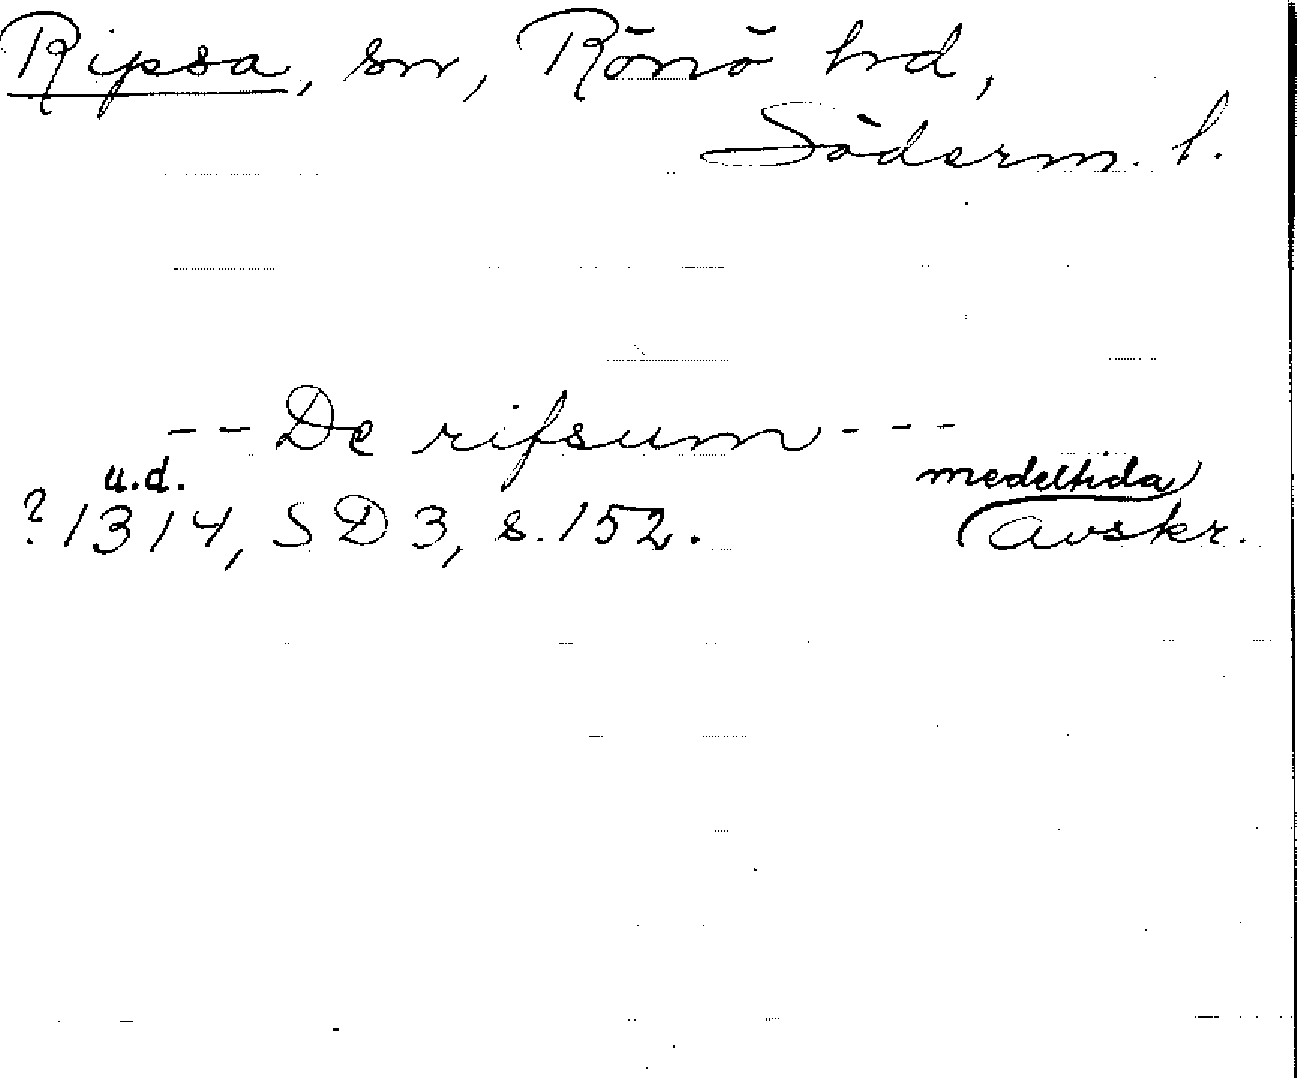 Ripsa, sn, Rönö hd,
Söderm. l.
-- De rifsum ---
u.d. medeltida
? 1314, SD 3, s. 152. avskr.